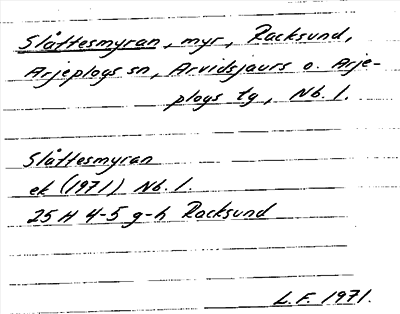 Slåttesmyran, myr, Racksund,
Arjeplogs sn, Arvidsjaurs o. Arje-
plogs tg, Nb. l.
Slåttesmyran
ek (1971) Nb. l.
25 H 4-5 g-h Racksund
L.F. 1971.